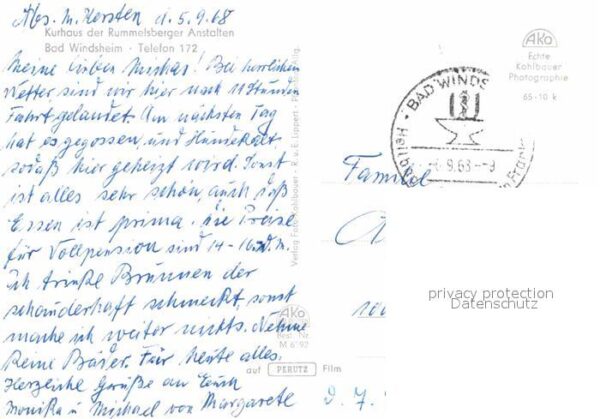 Abs. M. Kersten d. 5.9.68
Kurhaus der Rummelsberger Anstalten
Bad Windsheim · Telefon 172
Meine lieben Michas! Bei herrlichem
Wetter sind wir hier nach 11 Stunden
Fahrt gelandet. Am nächsten Tag
hat es gegossen, und Hundekalt
sodaß hier geheizt wird. Sonst
ist alles sehr schön, auch das
Essen ist prima. Die Preise
für Vollpension sind 14 - 16
ich trinke Brunnen der
schauderhaft schmeckt, sonst
mache ich weiter nichts. Nehme
keine Bäder. Für heute alles
Herzliche Grüße an Euch
Monika u Michael von Margarete
Verlag Foto Kohlbauer · K. u. E. Lippert
Ako
Best. Nr.
M 6192
auf PERUTZ Film
Ako
Echte
Kohlbauer
Photographie
65-10 k
BAD WINDS
9.68-9
Familie
privacy protection
Datenschutz